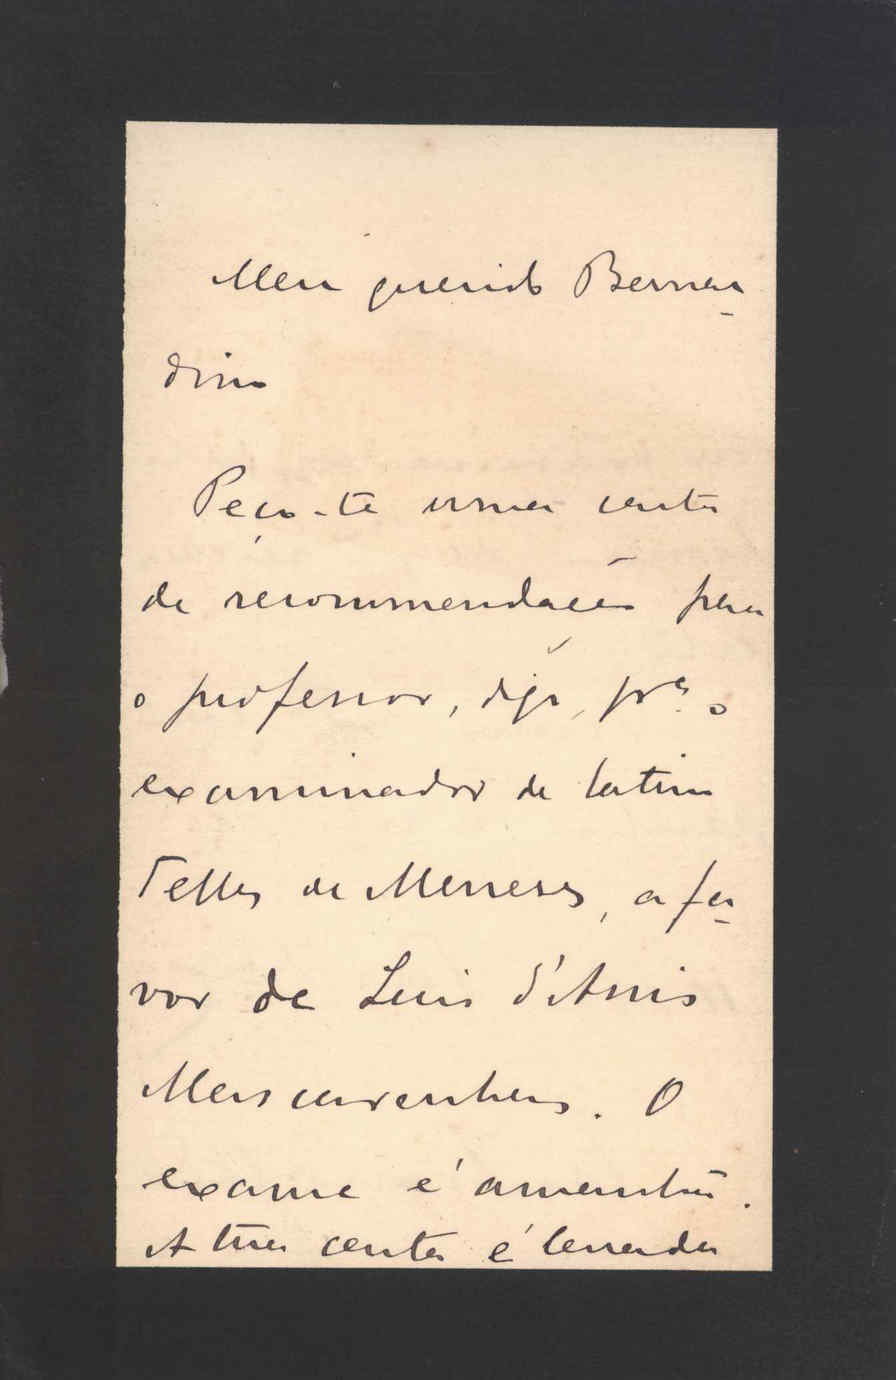 Meu querido Bernar-
dino
Peço-te uma carta
de recommendação para
o professor, digo, pr.ª o
examinador de latim
Telles de Meneses, a fa-
vor de Luis d'Assis
Mascarenhas. O
exame é amanhã.
A tua carta é levada